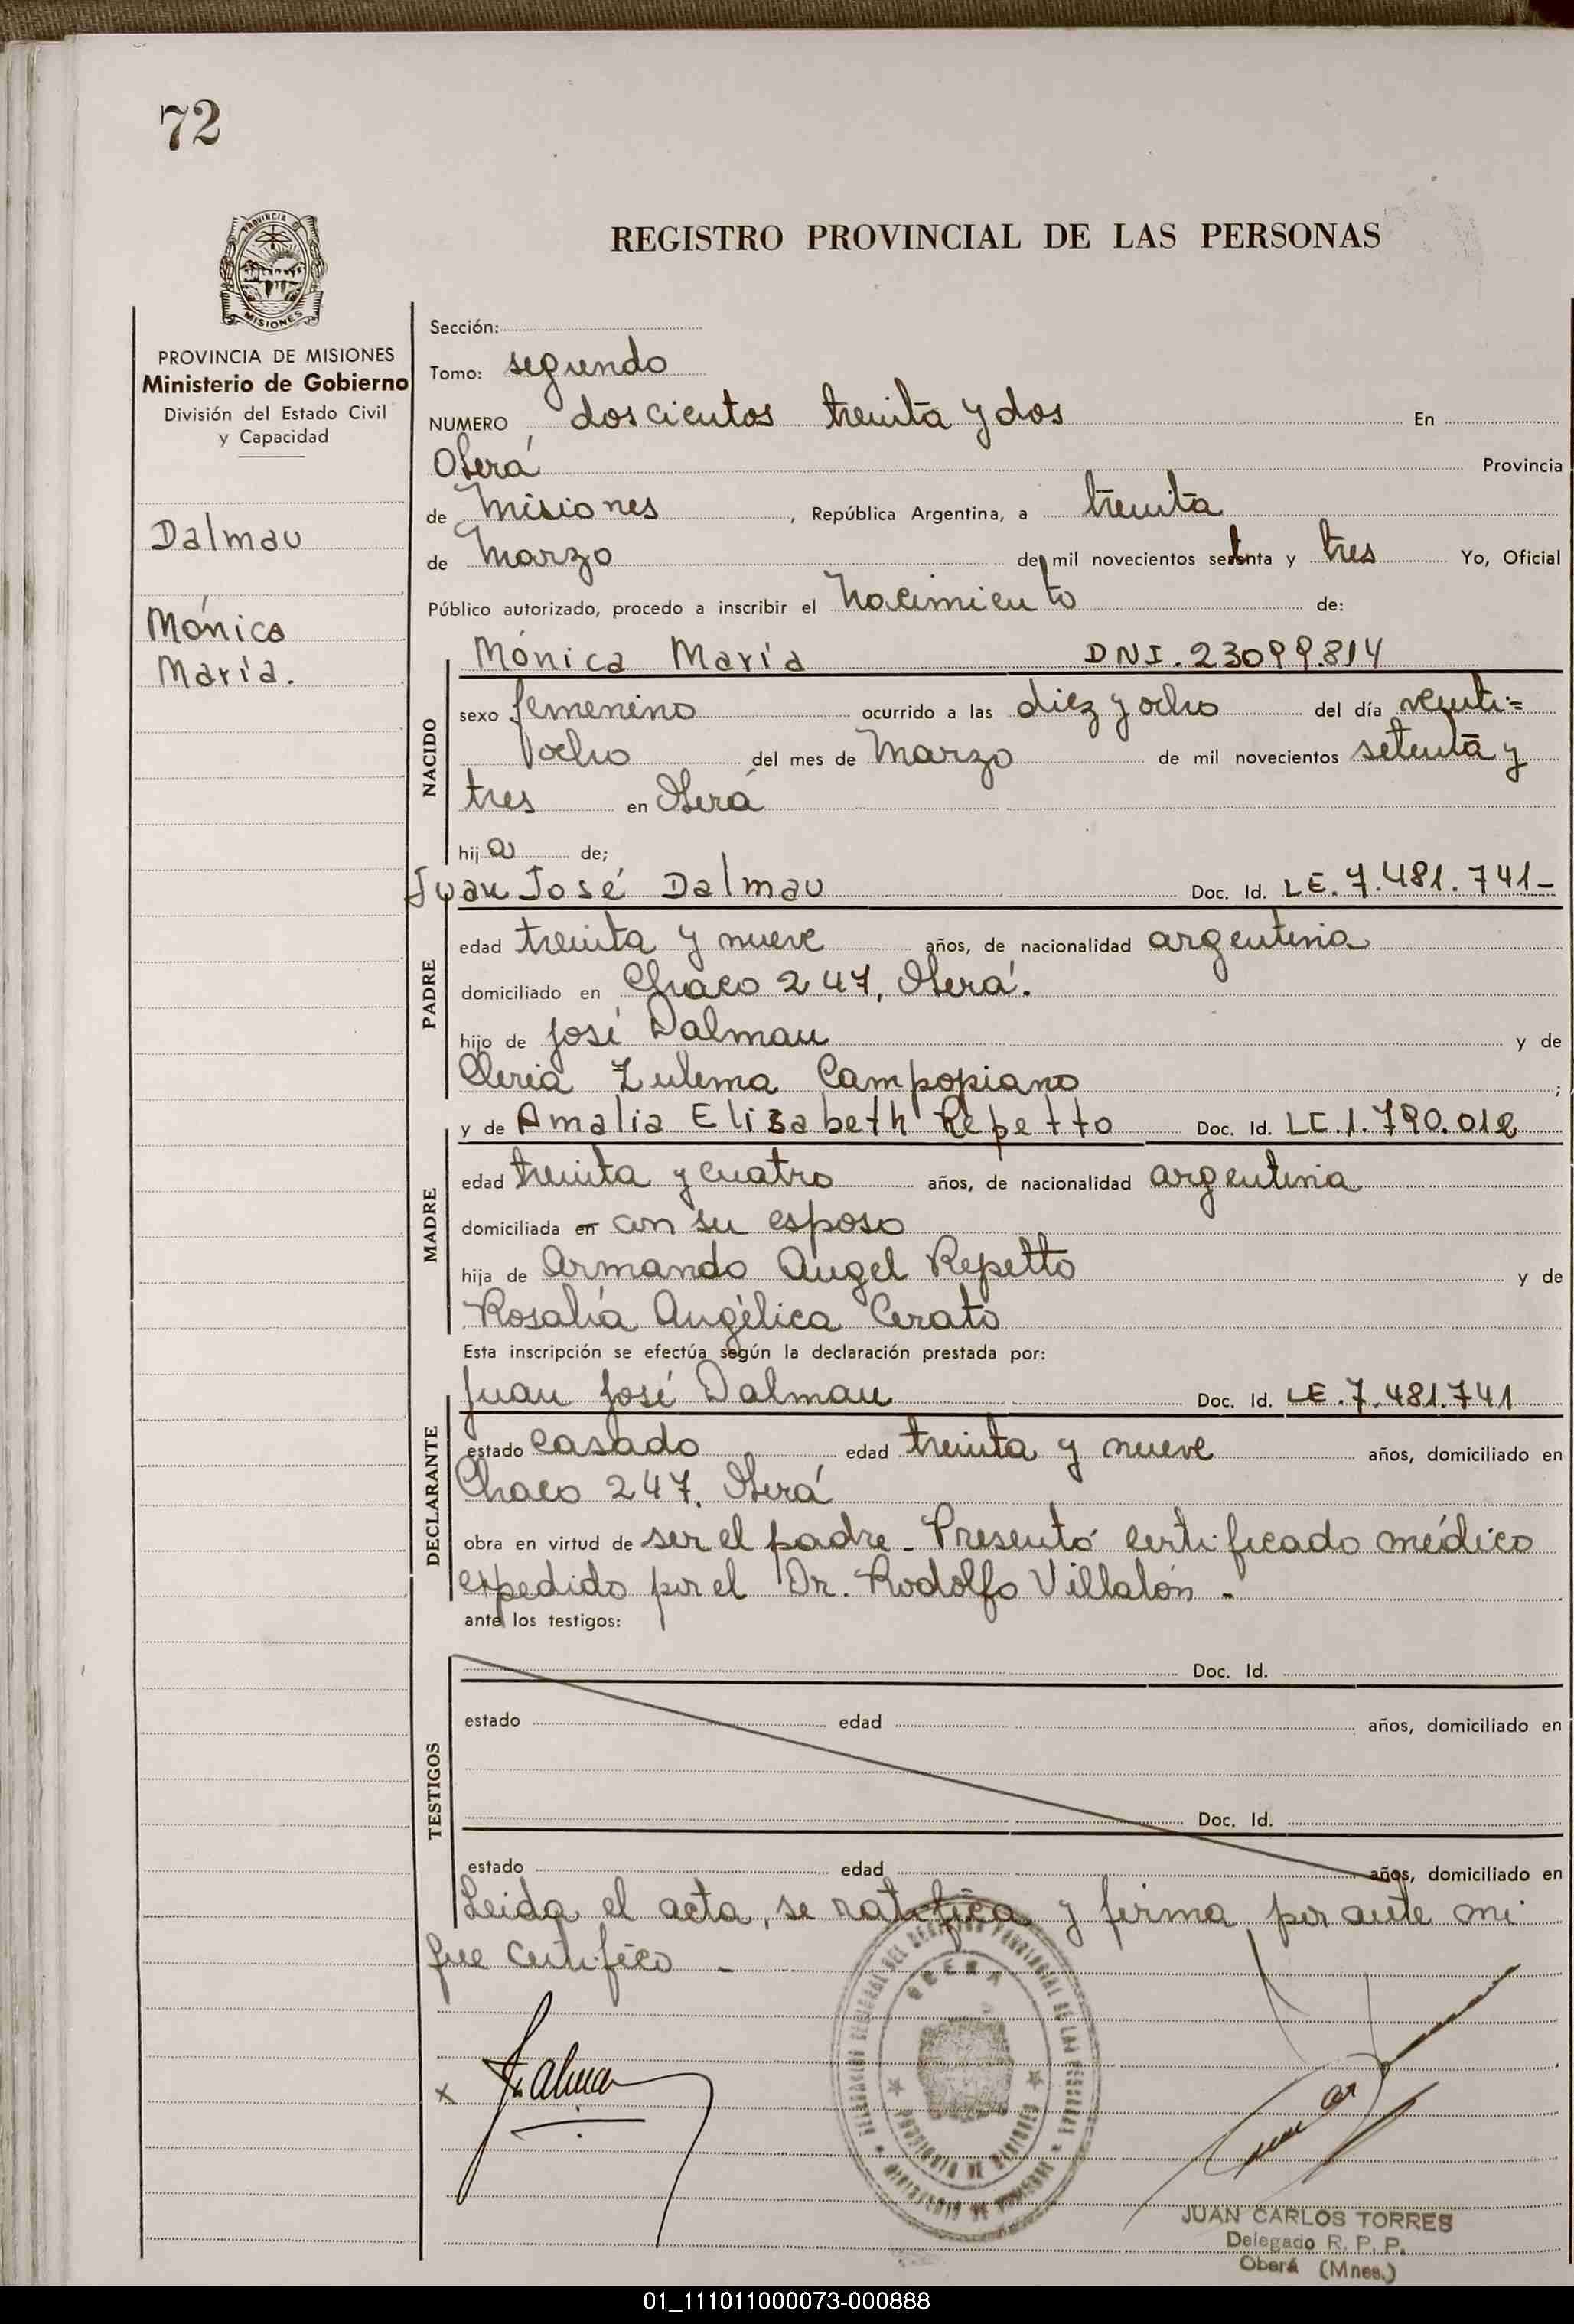 72
PROVINCIA D
MISIONES
REGISTRO PROVINCIAL DE LAS PERSONAS
PROVINCIA DE MISIONES
Ministerio de Gobierno
División del Estado Civil
y Capacidad
Dalmau
Mónica
María.
Sección:
Tomo: segundo
NUMERO doscientos treinta y dos En
Oberá Provincia
de Misiones, República Argentina, a treinta
de Marzo de mil novecientos setenta y tres Yo, Oficial
Público autorizado, procedo a inscribir el Nacimiento de:
Mónica María DNI. 23099.814
NACIDO
sexo femenino ocurrido a las diez y ocho del día veinti=
ocho del mes de Marzo de mil novecientos setenta y
tres en Oberá
hija de;
Juan José Dalmau Doc. Id. LE. 7.481.741-
PADRE
edad treinta y nueve años, de nacionalidad argentina
domiciliado en Chaco 247, Oberá.
hijo de José Dalmau y de
Zulema Campopiano ;
y de Amalia Elisabeth Repetto Doc. Id. LC. 1.790.012
MADRE
edad treinta y cuatro años, de nacionalidad argentina
domiciliada en con su esposo
hija de Armando Angel Repetto y de
Rosalía Angélica Cerato
Esta inscripción se efectúa según la declaración prestada por:
Juan José Dalmau Doc. Id. LE. 7.481.741
DECLARANTE
estado casado edad treinta y nueve años, domiciliado en
Chaco 247. Oberá
obra en virtud de ser el padre - Presentó certificado médico
expedido por el Dr. Rodolfo Villalón -
ante los testigos:
TESTIGOS
Doc. Id.
estado edad años, domiciliado en
Doc. Id.
estado edad años, domiciliado en
Leida el acta, se ratifica y firma, por ante mi
que certifico -
DELEGACION SECCIONAL DEL REGISTRO PROVINCIAL DE LAS PERSONAS
OBERA
PROVINCIA DE MISIONES
MINISTERIO DE GOBIERNO
x
JUAN CARLOS TORRES
Delegado R. P. P.
Oberá (Mnes.)
01_111011000073-000888